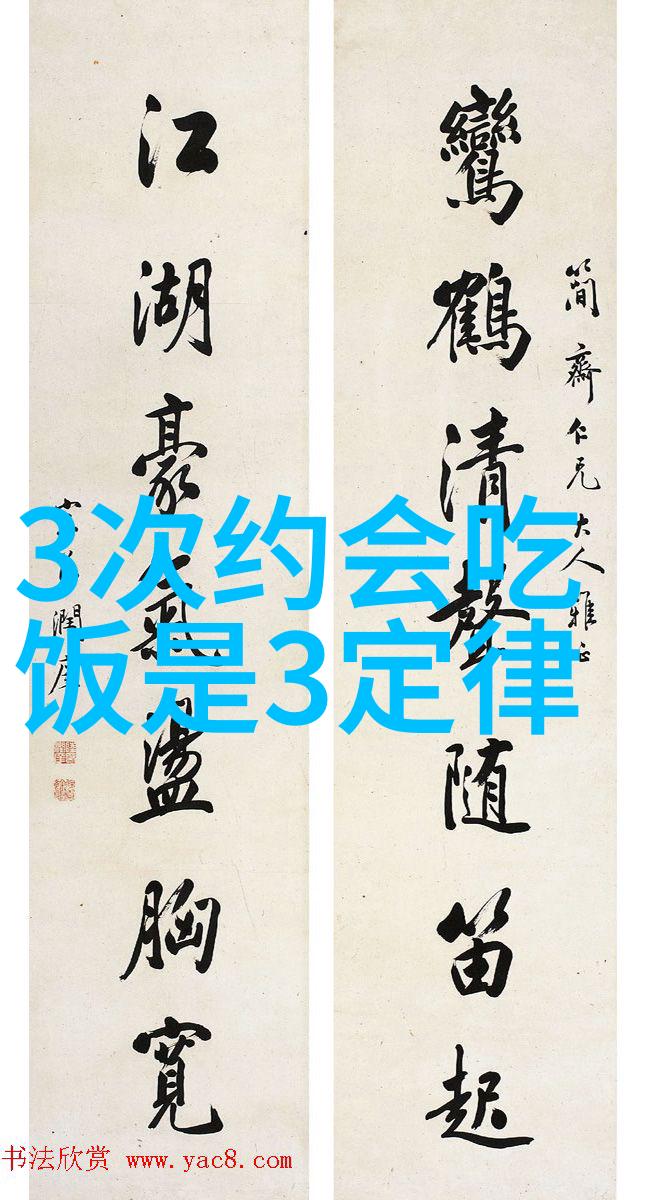 簡齋仁兄大人雅正
鸞鶴清聲随笛起
江湖豪氣盪胸寬
潤庠
3次约会吃
饭是3定律
书法欣赏 www.yac8.com